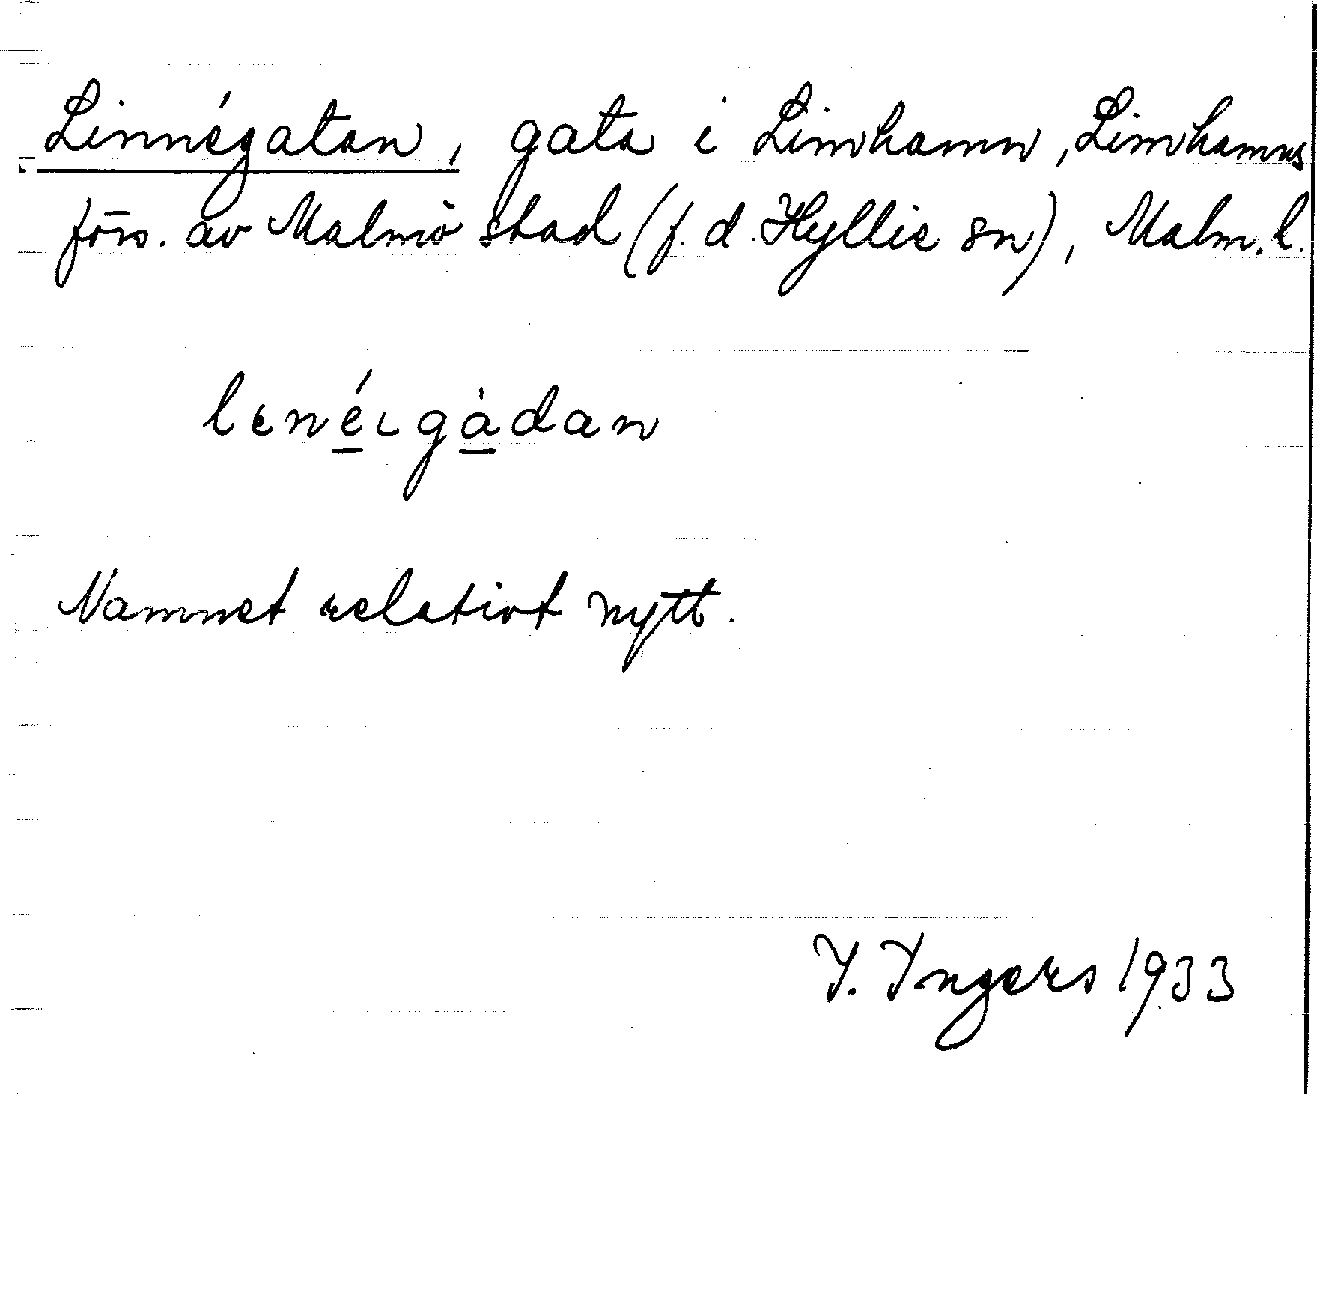 Linnégatan, gata i Limhamn, Limhamns
förs. av Malmö stad (f. d. Hyllie sn), Malm. l.
lenéıgàdan
Namnet relativt nytt.
I. Ingers 1933